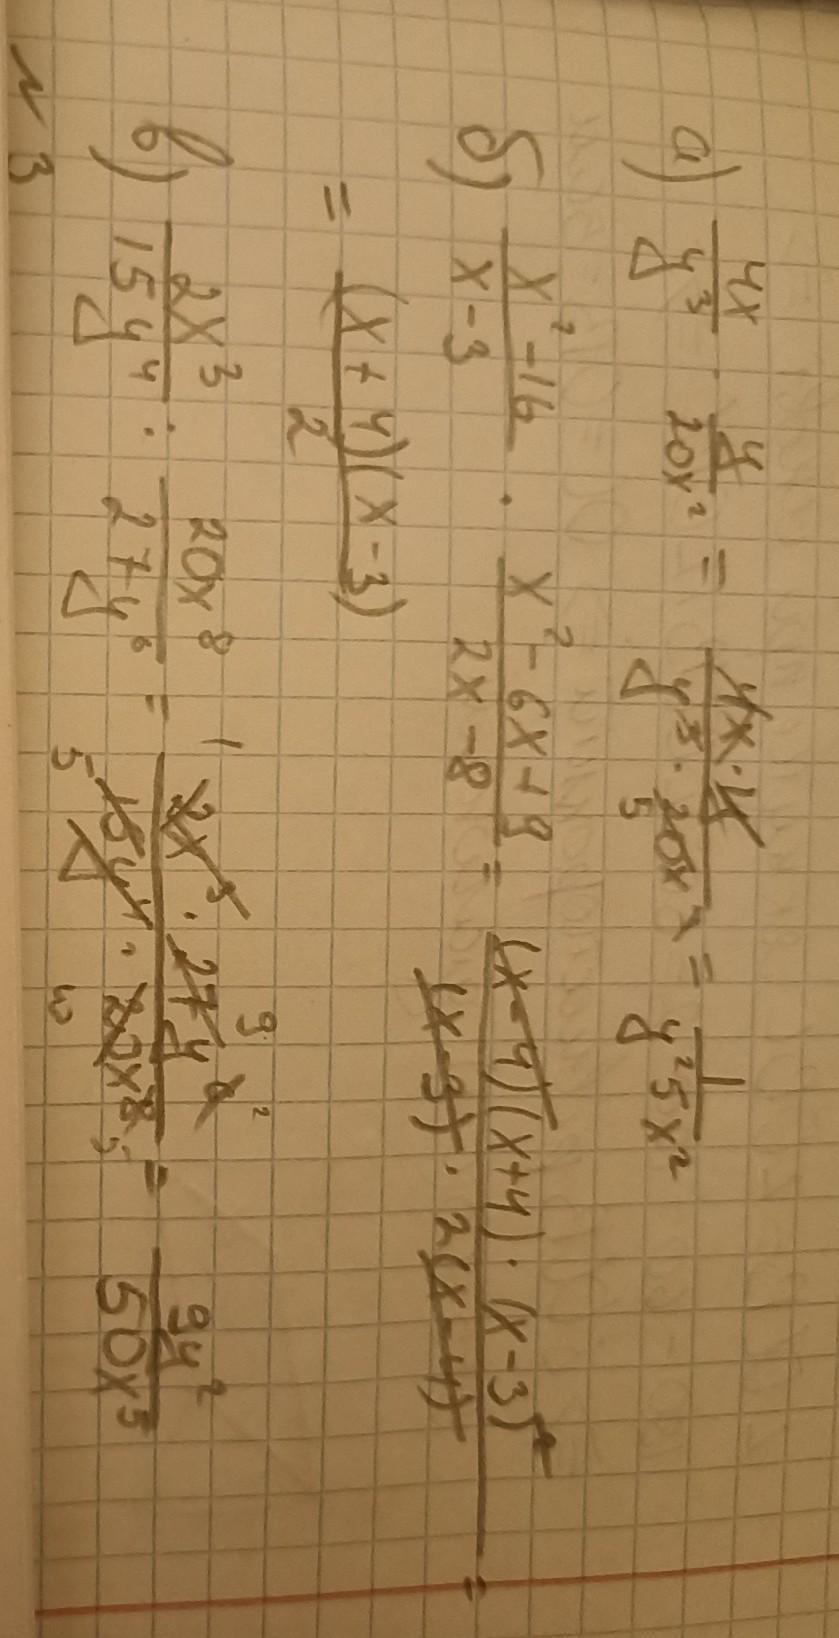 а) 4x/y³ · y/20x² = 4x·y/y³·20x² = 1/y²5x²
б) x²-16/x-3 · x²-6x+9/2x-8 = (x-4)(x+4)·(x-3)²/(x-3)·2(x-4) =
= (x+4)(x-3)/2
в) 2x³/15y⁴ : 20x⁸/27y⁶ = 2x³·27y⁶/15y⁴·20x⁸ = 9y²/50x⁵
№3